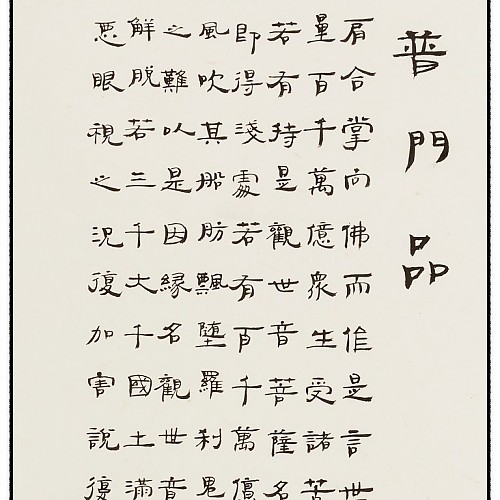 普門品
肩合掌向佛而作是言世
量百千萬億眾生受諸苦
若有持是觀世音菩薩名
即得淺處若有百千萬億
風吹其船舫飄墮羅剎鬼
之難以是因緣名觀世音
解脫若三千大千國土滿
惡眼視之況復加害說復